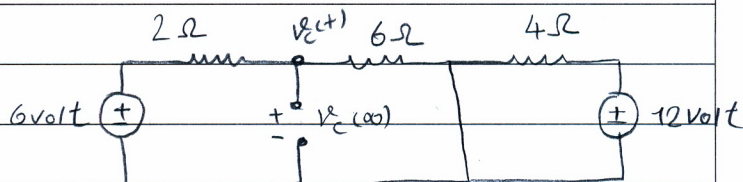 2Ω vc(t) 6Ω 4Ω
6volt + + vc(∞) ± 12volt
-